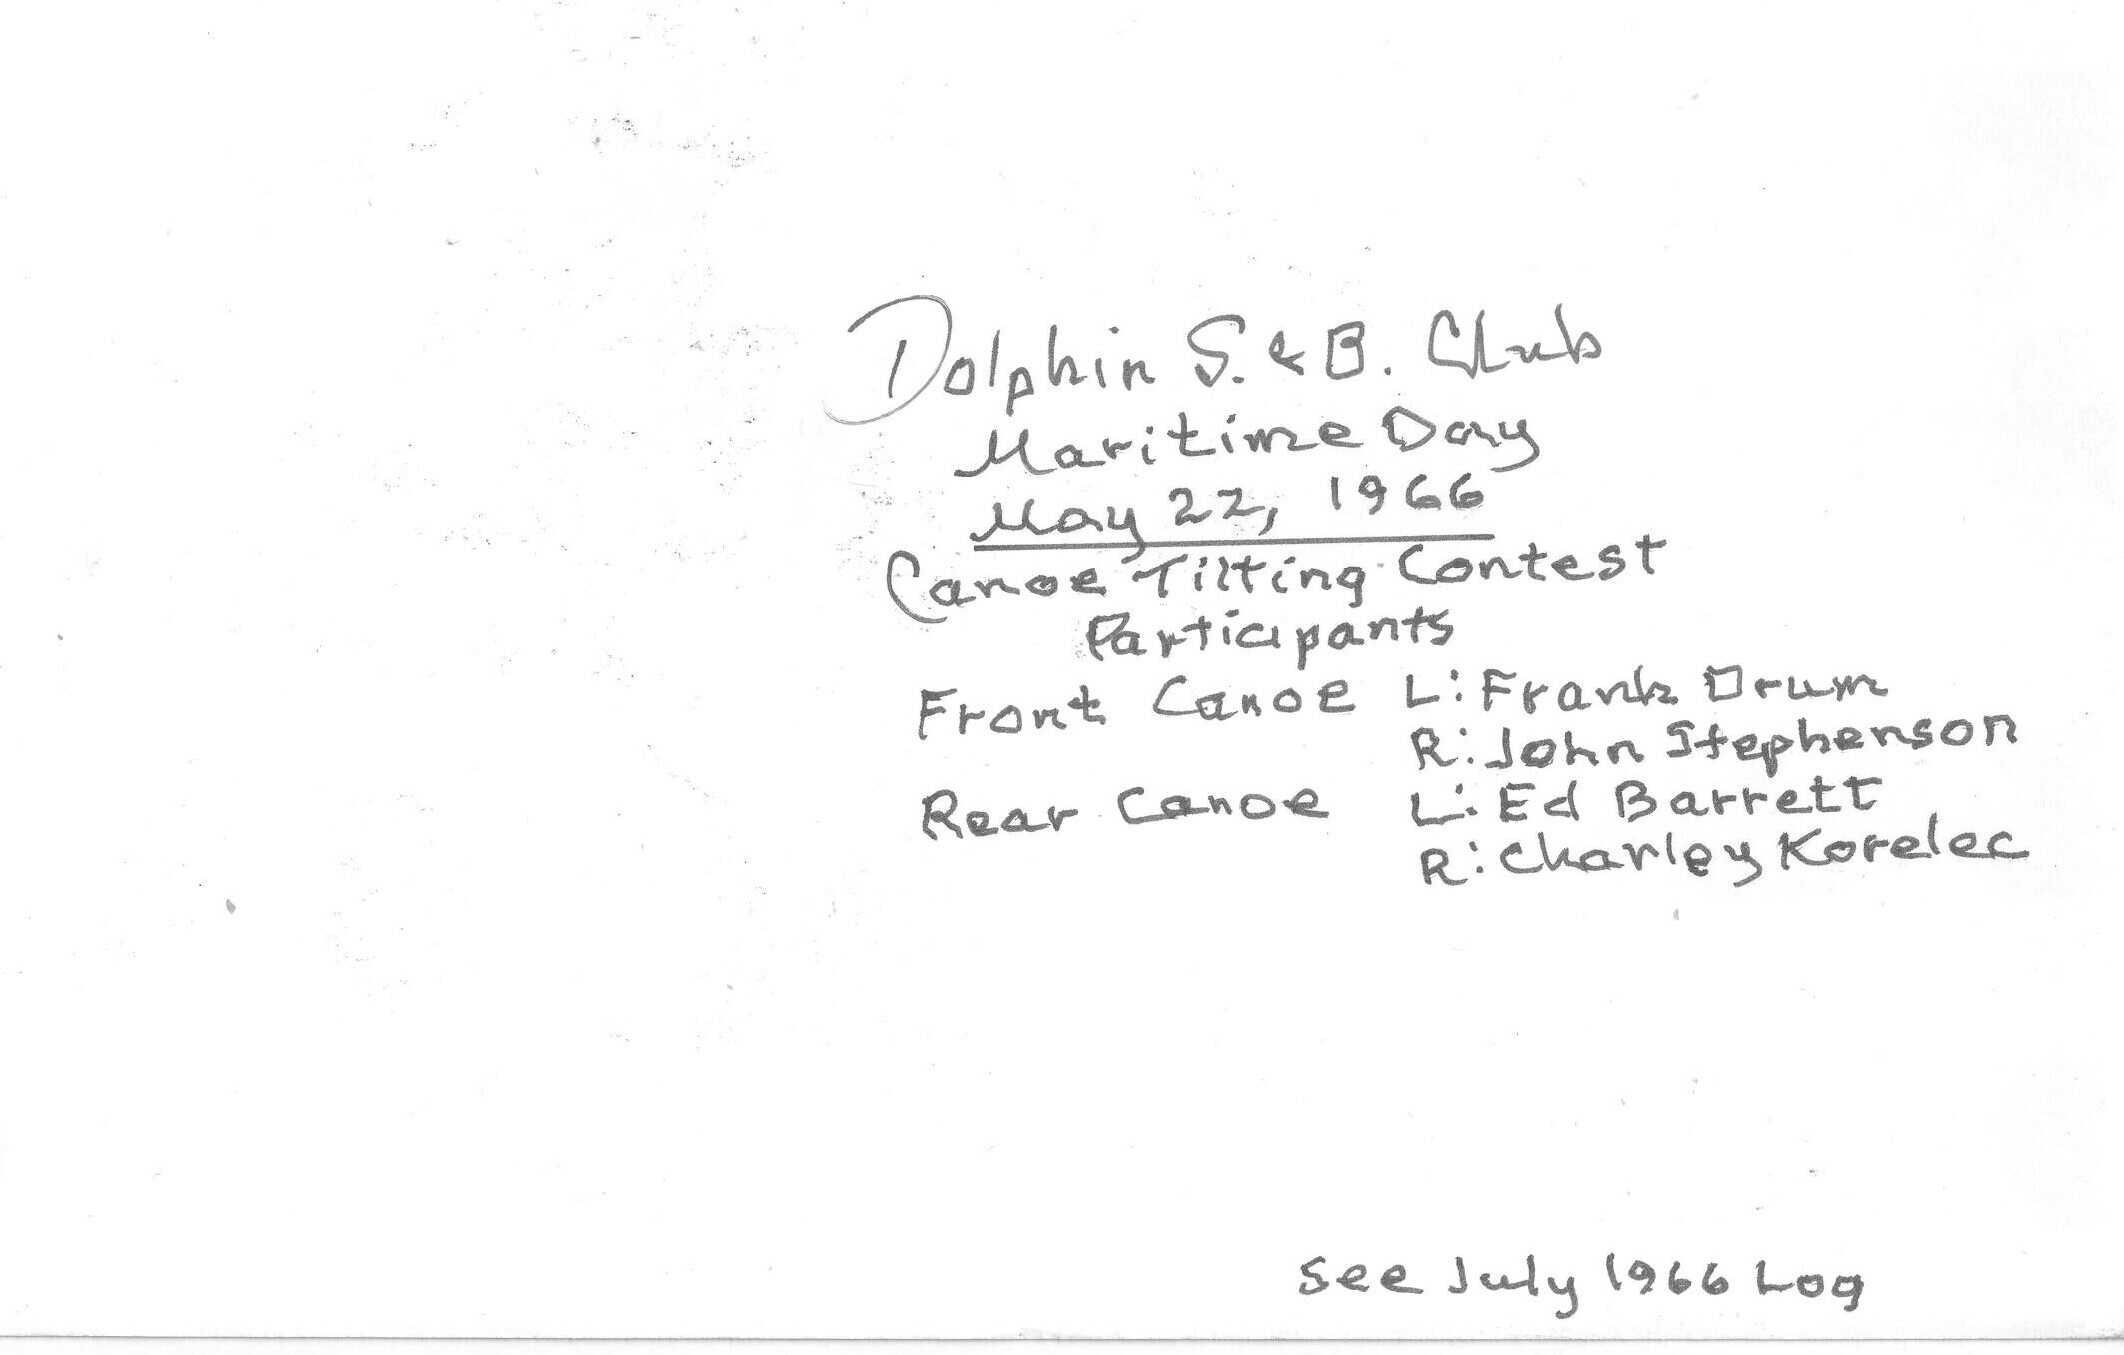 Dolphin S. & B. Club
Maritime Day
May 22, 1966
Canoe Tilting Contest
Participants
Front Canoe L: Frank Drum
R: John Stephenson
Rear Canoe L: Ed Barrett
R: Charley Korelec
See July 1966 Log